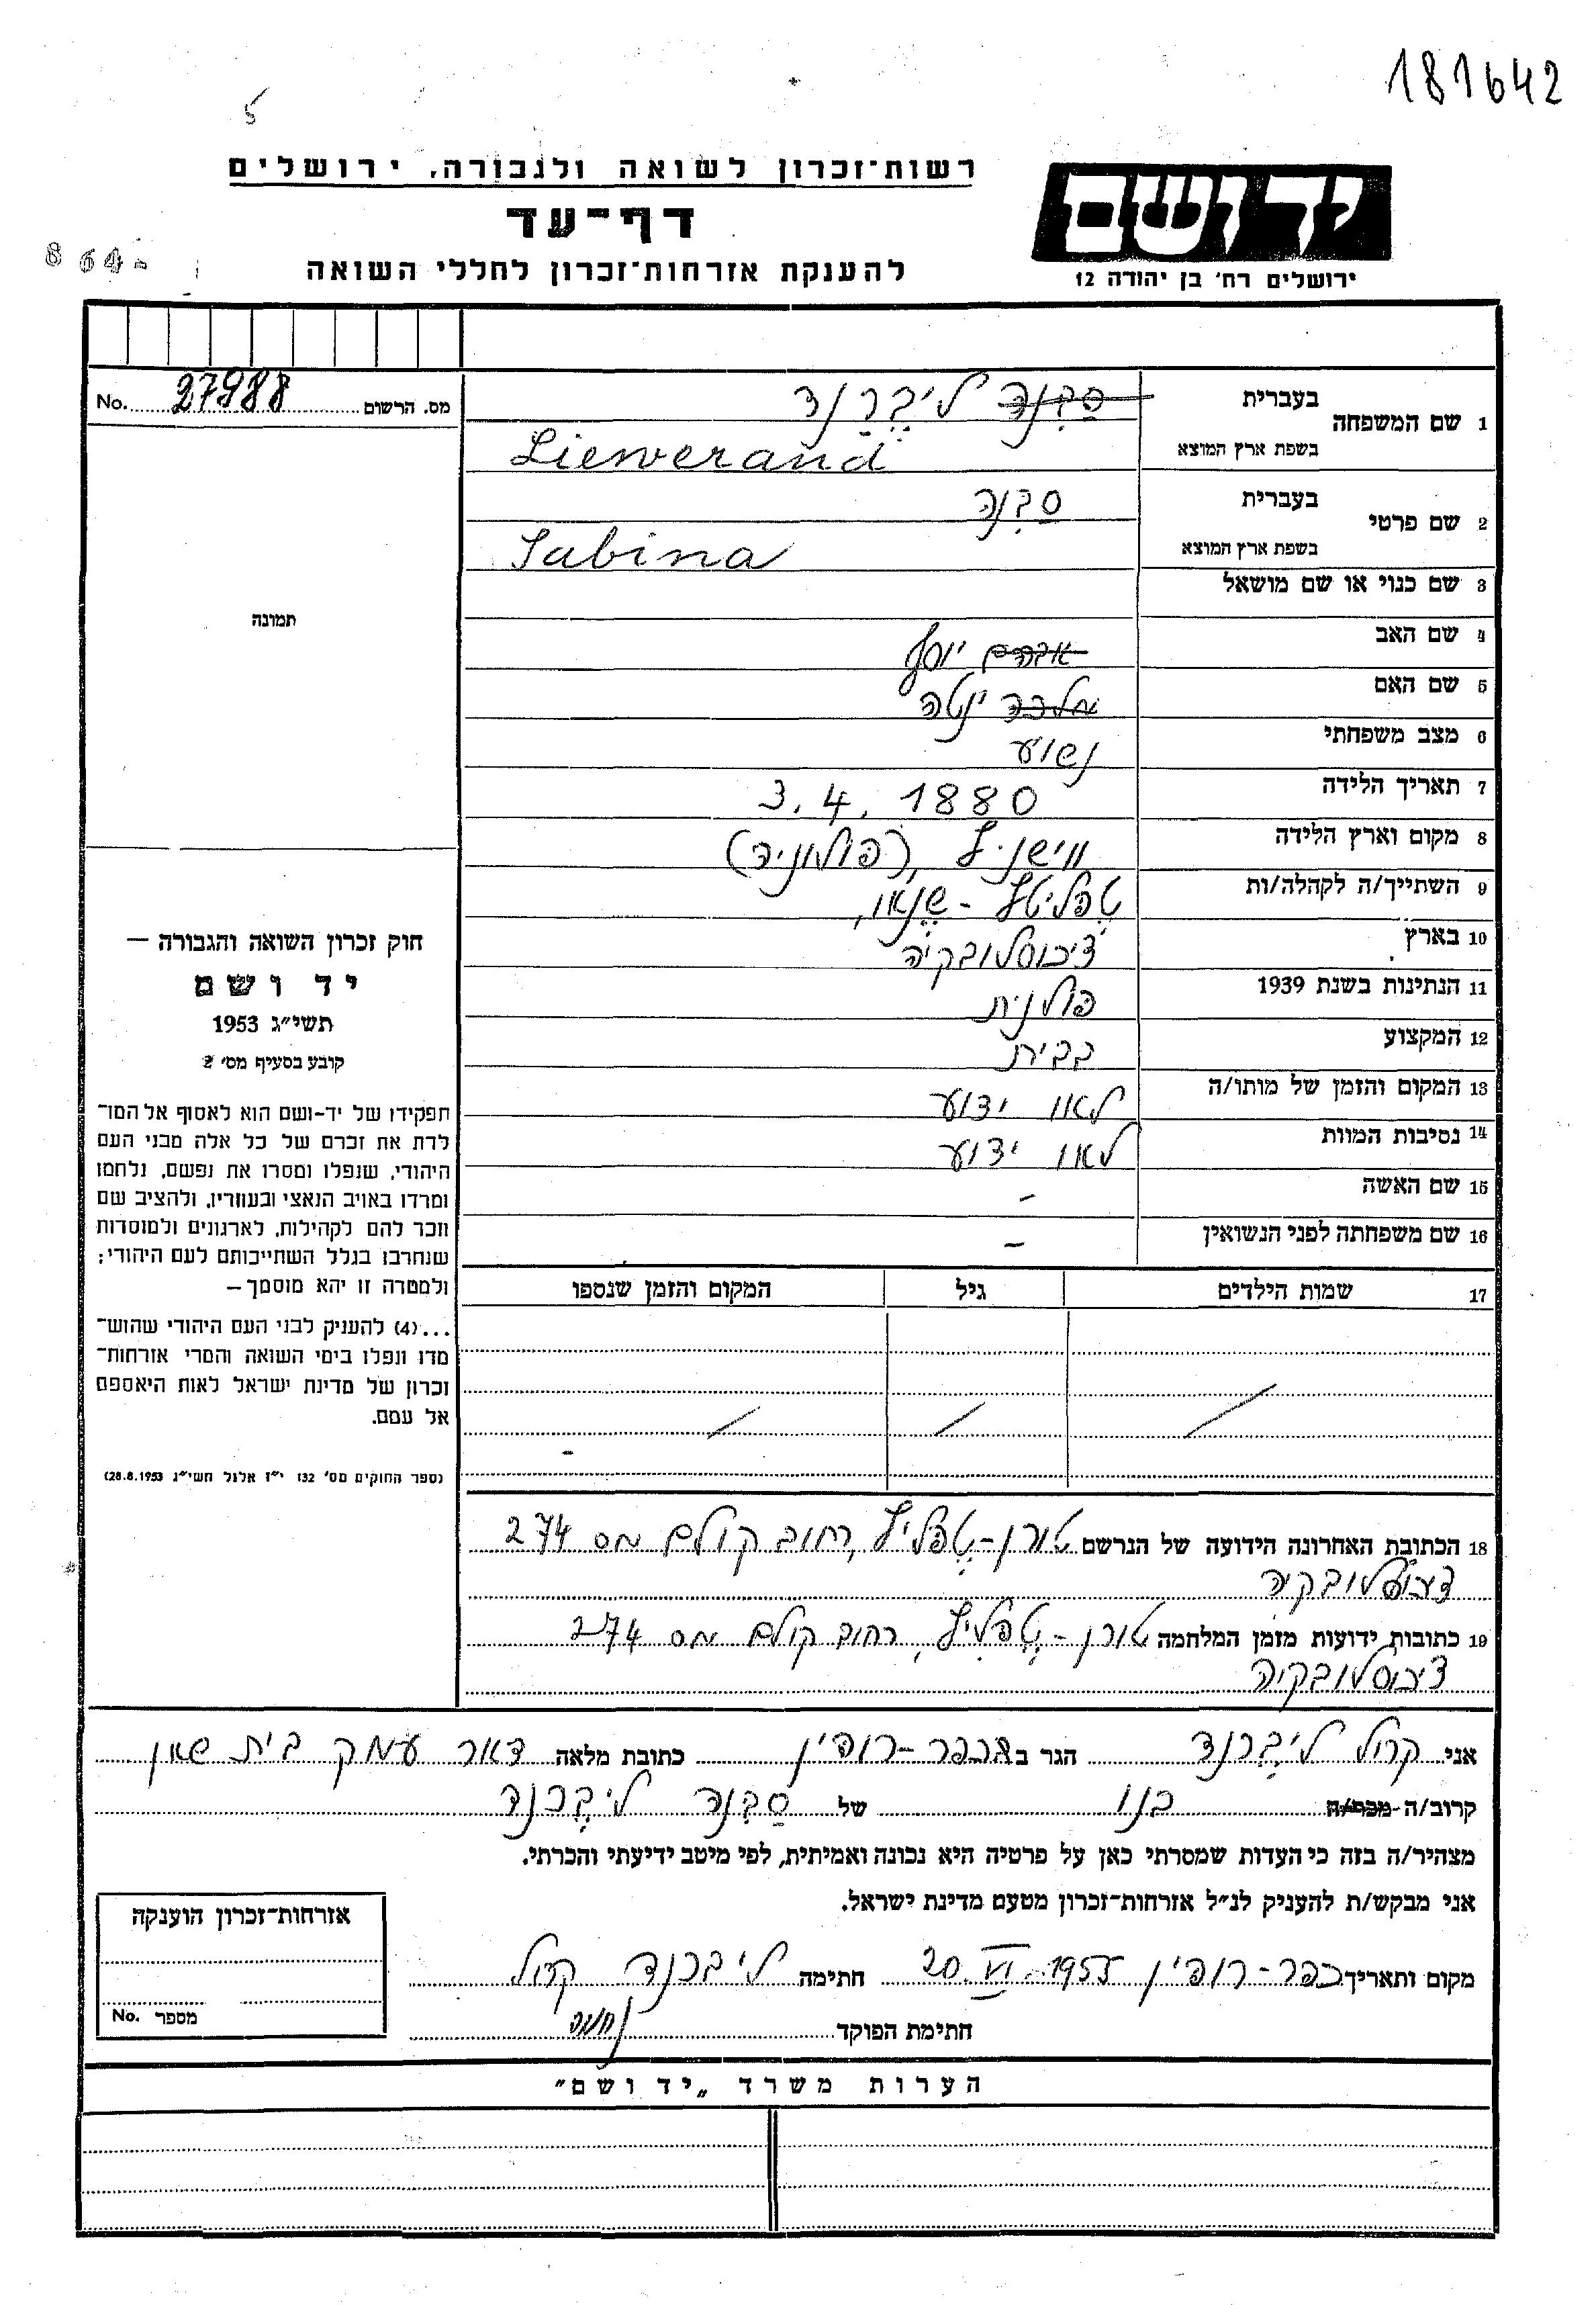 181642
רשות־זכרון לשואה ולגבורה, ירושלים
דף־עד
להענקת אזרחות־זכרון לחללי השואה
864-
יד ושם
ירושלים רח' בן יהודה 12
מס. הרשום 27988 No.
1 שם המשפחה בעברית סבנה ליברנד
בשפת ארץ המוצא Liewerand
2 שם פרטי בעברית סבנה
בשפת ארץ המוצא Sabina
3 שם כנוי או שם מושאל
4 שם האב אברהם יוסף
5 שם האם מלכה יטה
6 מצב משפחתי נשוי
7 תאריך הלידה 3.4.1880
8 מקום וארץ הלידה (פולוניה)
9 השתייך/ה לקהלה/ות טפליטץ - שנאו,
10 בארץ ציכוסלובקיה
11 הנתינות בשנת 1939 פולנית
12 המקצוע בבית
13 המקום והזמן של מותו/ה לאו ידוע
14 נסיבות המוות לאו ידוע
15 שם האשה -
16 שם משפחתה לפני הנשואין -
17 שמות הילדים גיל המקום והזמן שנספו
תמונה
חוק זכרון השואה והגבורה —
יד ושם
תשי״ג 1953
קובע בסעיף מס' 2
תפקידו של יד-ושם הוא לאסוף אל המו־
לדת את זכרם של כל אלה מבני העם
היהודי, שנפלו ומסרו את נפשם, נלחמו
ומרדו באויב הנאצי ובעוזריו, ולהציב שם
וזכר להם לקהילות, לארגונים ולמוסדות
שנחרבו בגלל השתייכותם לעם היהודי;
ולמטרה זו יהא מוסמך —
...(4) להעניק לבני העם היהודי שהוש־
מדו ונפלו בימי השואה והמרי אזרחות־
זכרון של מדינת ישראל לאות היאספם
אל עמם.
(ספר החוקים מס' 132 י״ז אלול תשי״ג 28.8.1953)
18 הכתובת האחרונה הידועה של הנרשם טורן-טפליץ, רחוב קולם מס 274
ציכוסלובקיה
19 כתובות ידועות מזמן המלחמה טורן-טפליץ, רחוב קולם מס 274
ציכוסלובקיה
אני קרול ליברנד הגר ב כפר-רופין כתובת מלאה דאר עמק בית שאן
קרוב/ה-מכר/ה בנו של סבנה ליברנד
מצהיר/ה בזה כי העדות שמסרתי כאן על פרטיה היא נכונה ואמיתית, לפי מיטב ידיעתי והכרתי.
אני מבקש/ת להעניק לנ״ל אזרחות־זכרון מטעם מדינת ישראל.
מקום ותאריך כפר-רופין 20.VI.1955 חתימה ליברנד קרול
חתימת הפוקד
אזרחות־זכרון הוענקה
מספר No.
הערות משרד „יד ושם״